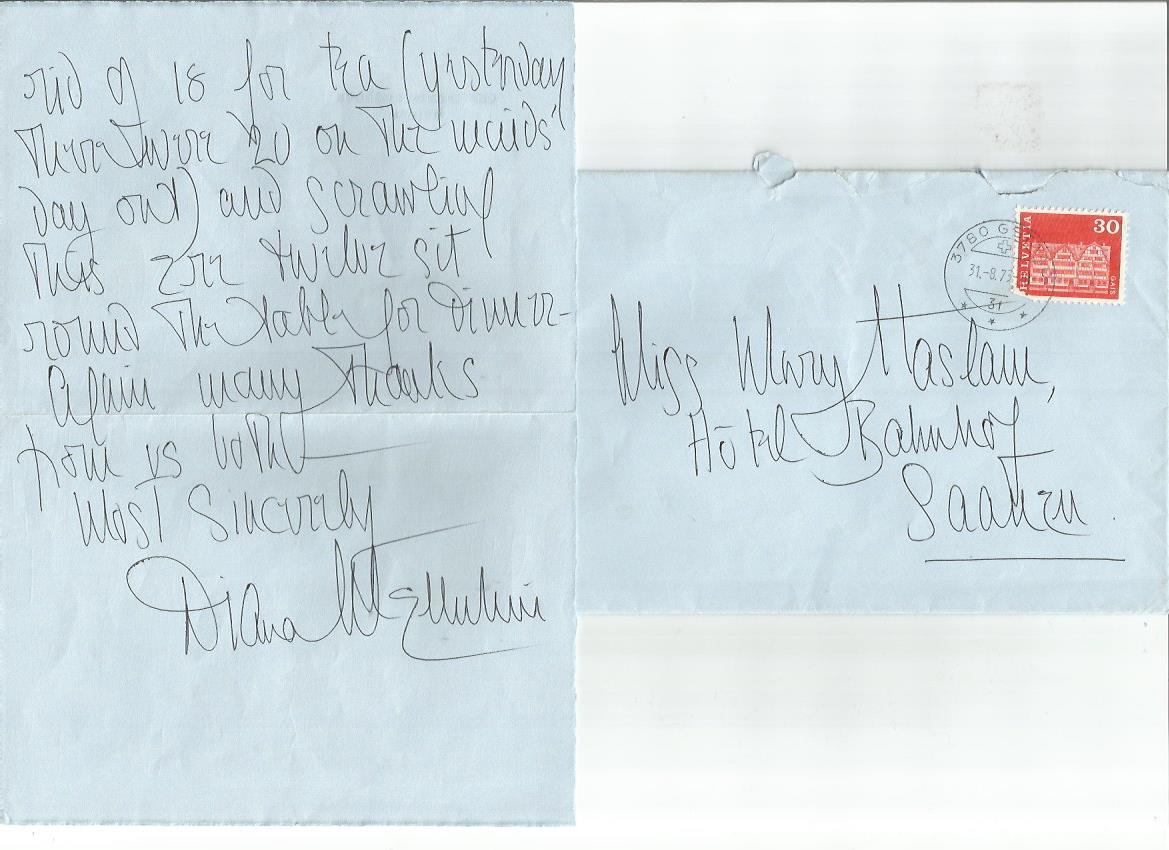 rid of 18 for tea (yesterday
there were 20 on the maids'
day out) and scrawling
this ere twelve sit
round the table for dinner-
Again many thanks
from us both
Most Sincerely
Diana
HELVETIA
30
GAIS
3780 G
31.-8.73
31
Miss Mary Haslam,
Hôtel Bahnhof
Saanen.